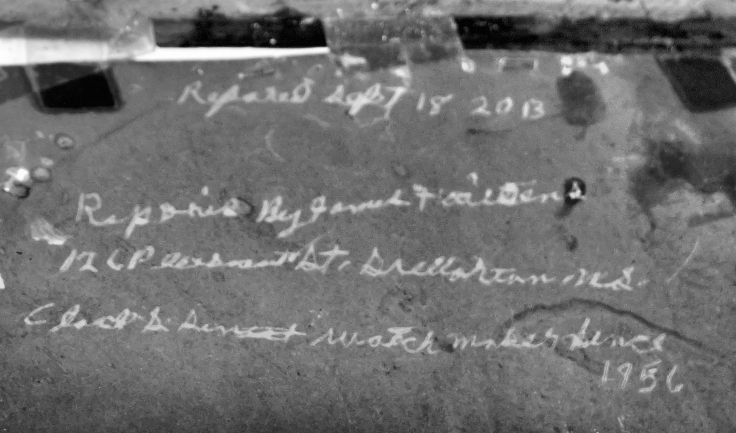 Repared Sept 18 2013
Repaired By James
126 Pleasant St. Stellarton N.S.
Clock & watch maker Since
1956